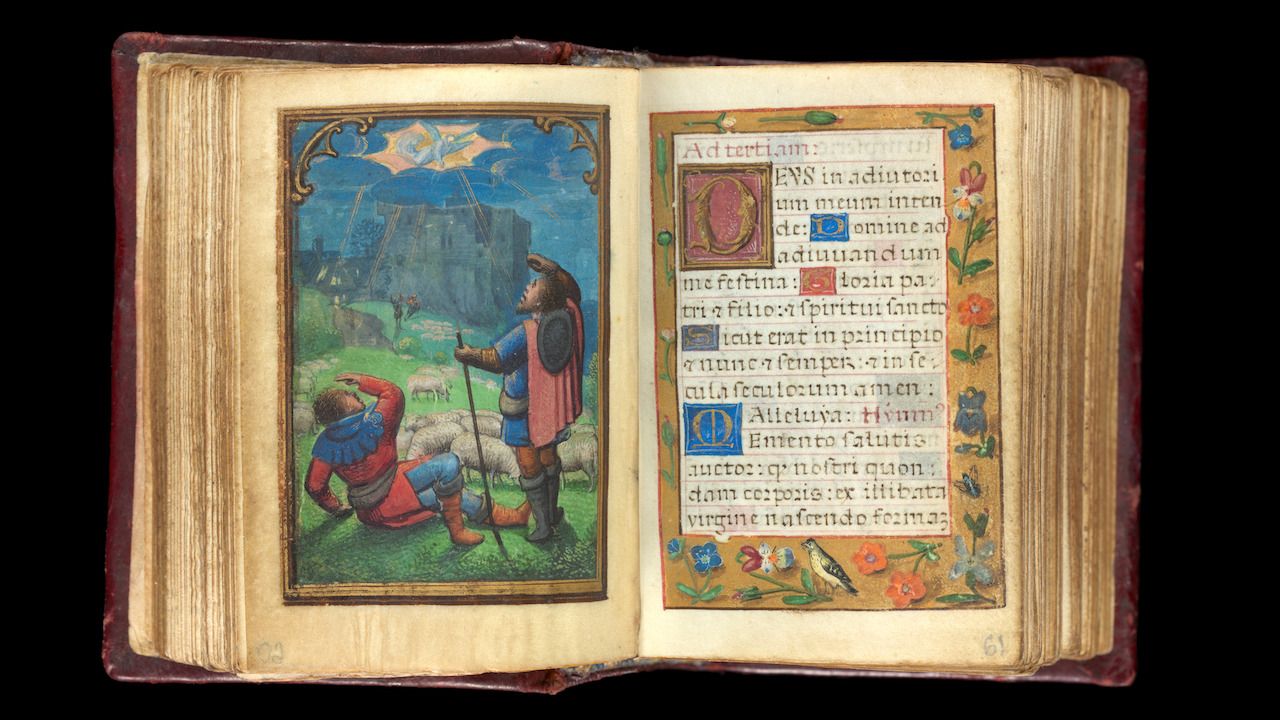 Ad tertiam:
DEVS in adiutori
um meum inten
de: Domine ad
adiuuandum
me festina: Gloria pa-
tri ⁊ filio: ⁊ spiritui sancto
Sicut erat in principio
⁊ nunc ⁊ semper: ⁊ in se-
cula seculorum amen:
Alleluya: Hymnꝰ
Memento salutis
auctor: qꝫ nostri quon:
dam corporis: ex illibata
virgine nascendo formaꝫ
61